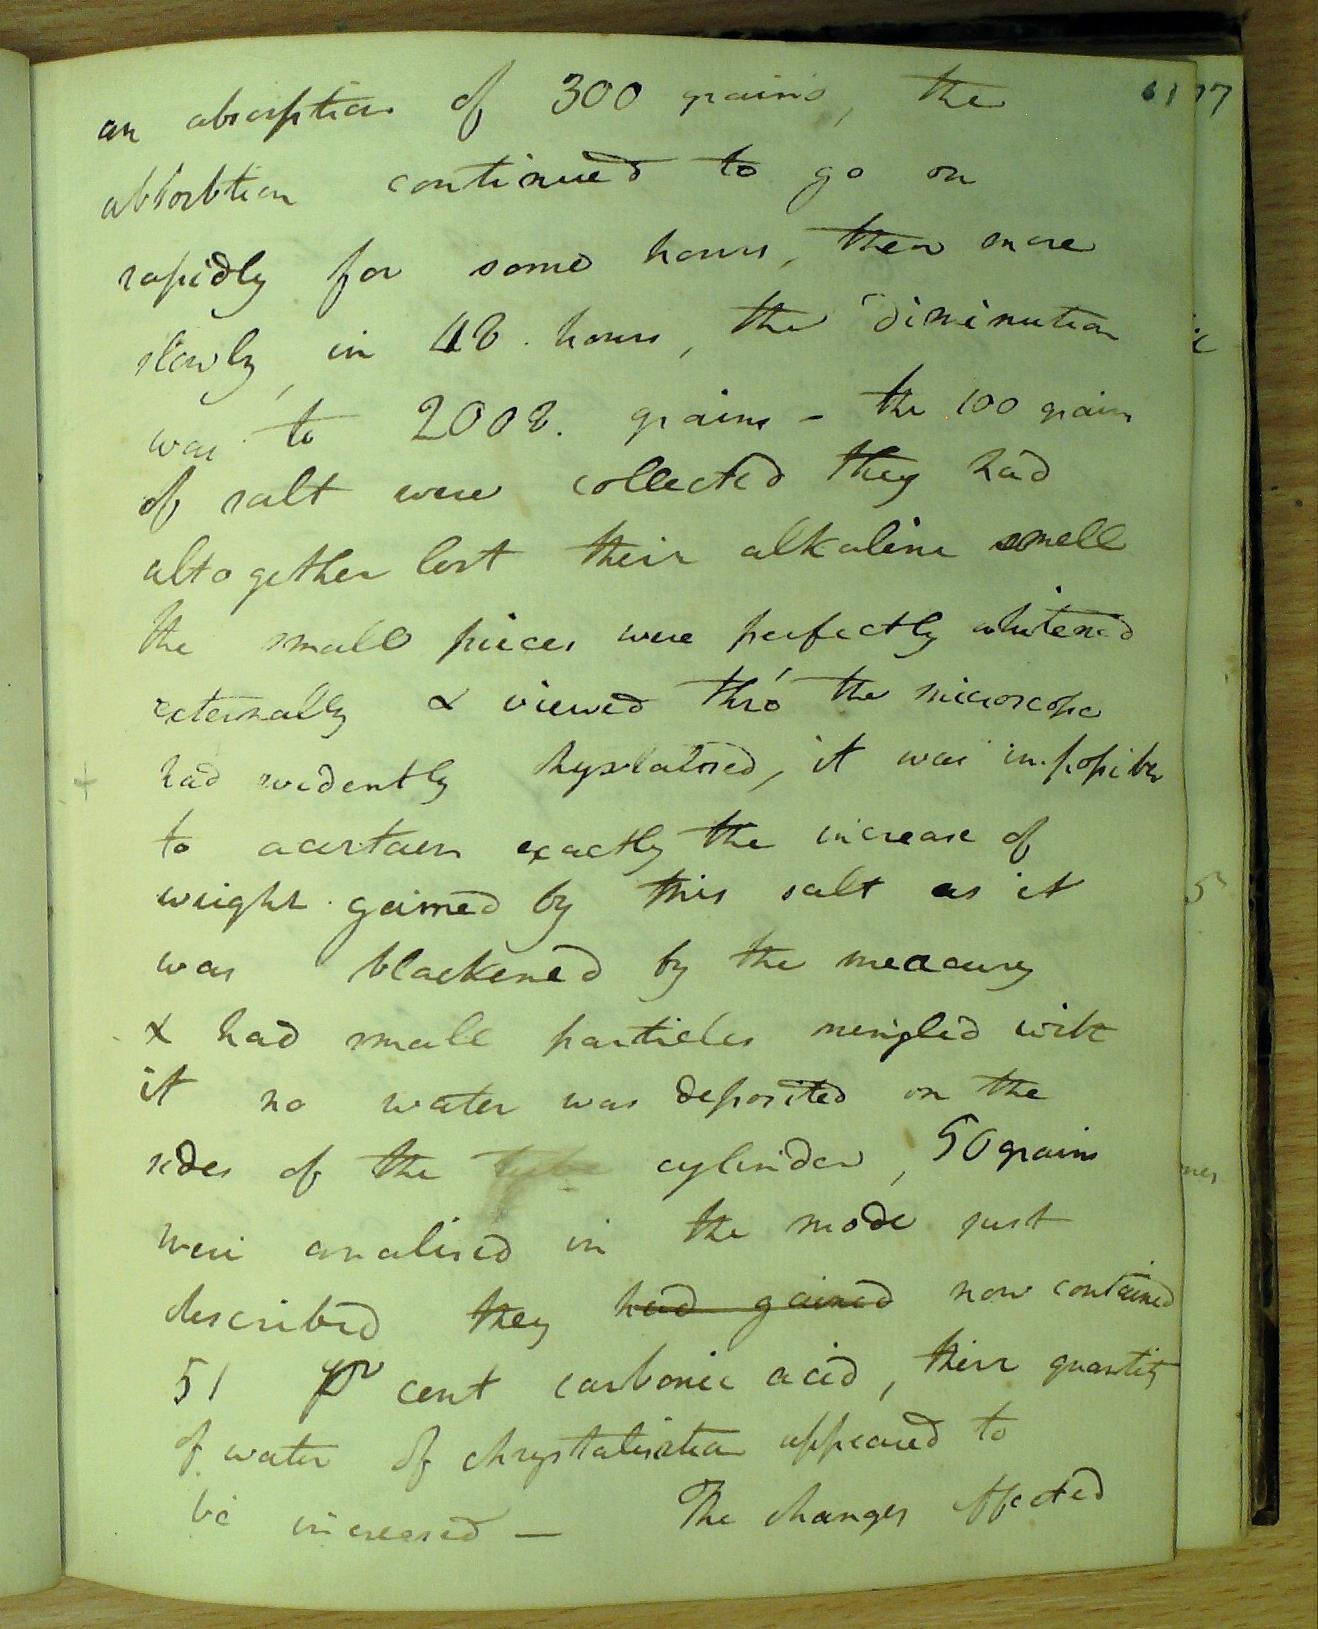 an absorption of 300 grains, the
absorbtion continued to go on
rapidly for some hours, then more
slowly, in 48. hours, the diminution
was to 2008. grains - the 100 grains
of salt were collected they had
altogether lost their alkaline smell
the small pieces were perfectly whitened
externally & viewed thro' the microscope
had evidently , it was impossible
to acertain exactly the increase of
weight gained by this salt as it
was blackened by the meacury
& had small particles mingled with
it no water was deposited on the
sides of the tube cylinder, 50 grains
were analised in the mode just
described they had gained now contained
51 pr cent carbonic acid, their quantity
of water of chrystalisation appeared to
be increased — The changes effected